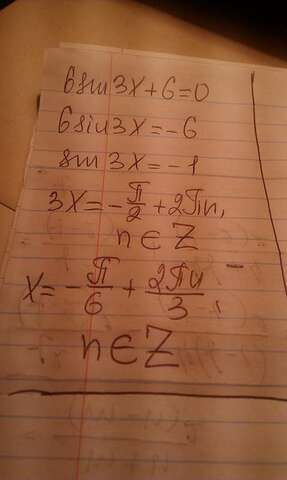 6sin3x+6=0
6sin3x=-6
sin3x=-1
3x=-π/2+2πn,
n∈Z
x=-π/6+2πn/3,
n∈Z